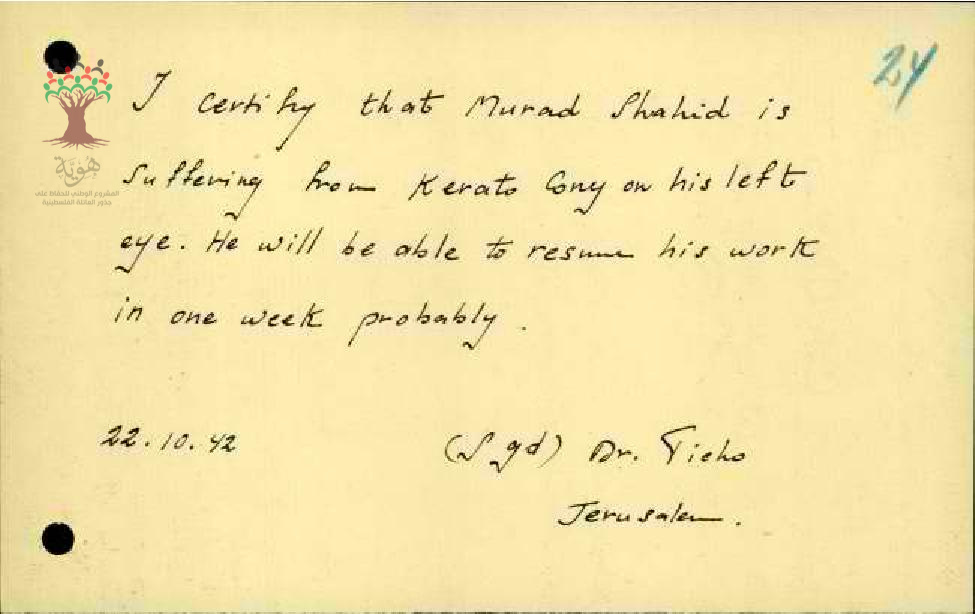 24
I certify that Murad Shahid is
suffering from Kerato Conj on his left
eye. He will be able to resume his work
in one week probably.
22.10.42
(Sgd) Dr. Ticho
Jerusalem.
هوية
المشروع الوطني للحفاظ على
جذور العائلة الفلسطينية